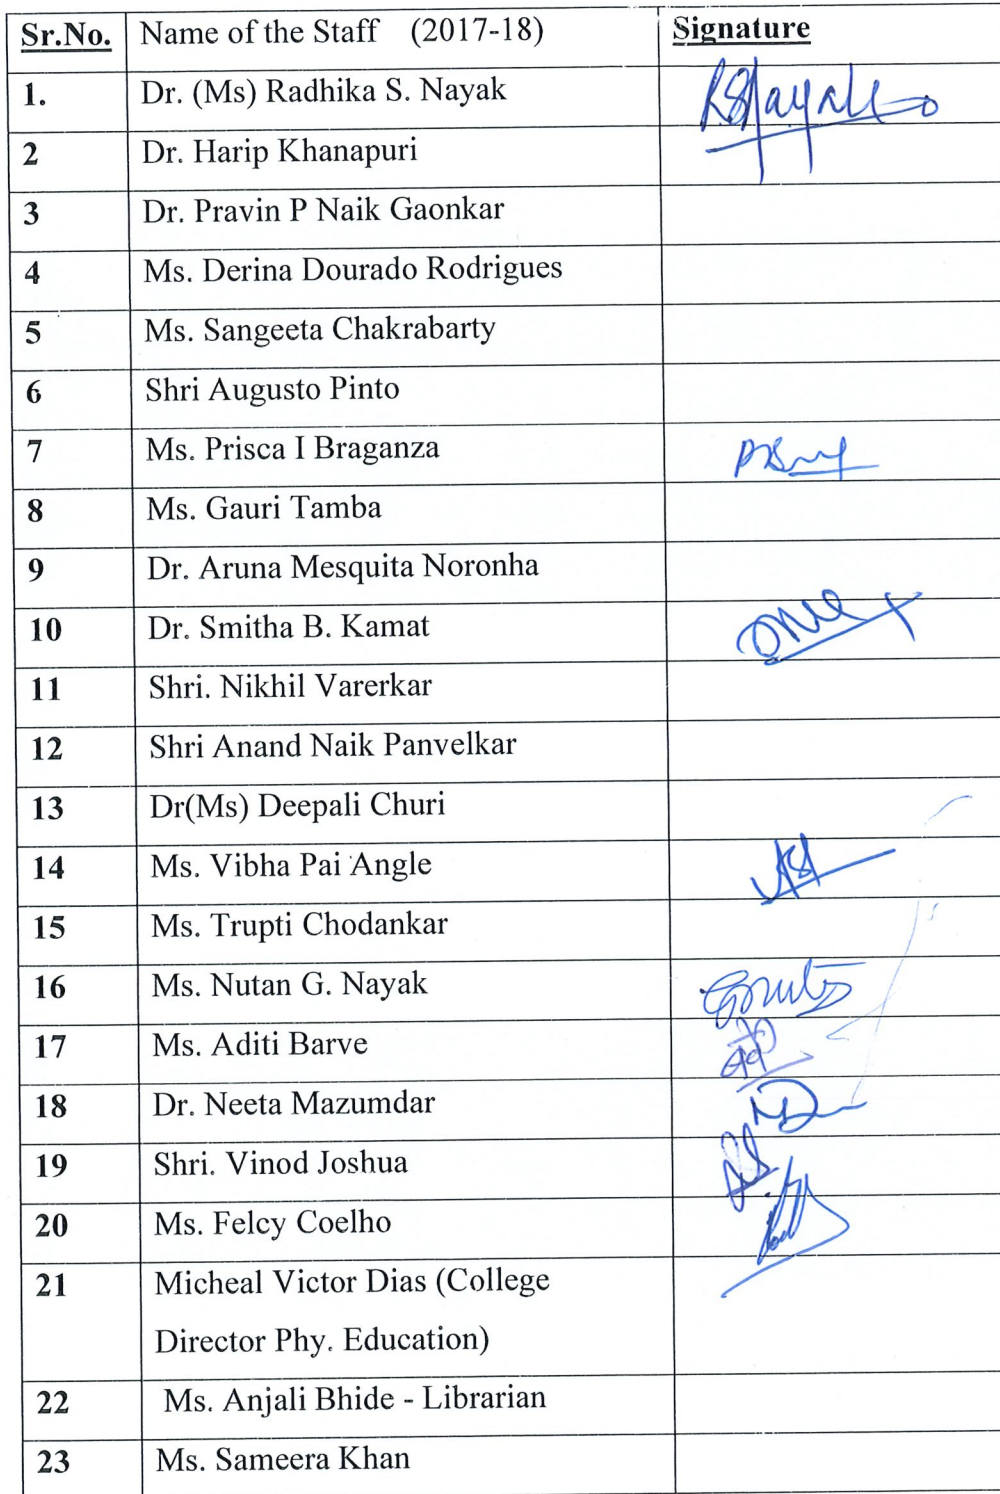 Sr.No. Name of the Staff (2017-18) Signature
1. Dr. (Ms) Radhika S. Nayak RSNayak
2 Dr. Harip Khanapuri
3 Dr. Pravin P Naik Gaonkar
4 Ms. Derina Dourado Rodrigues
5 Ms. Sangeeta Chakrabarty
6 Shri Augusto Pinto
7 Ms. Prisca I Braganza
8 Ms. Gauri Tamba
9 Dr. Aruna Mesquita Noronha
10 Dr. Smitha B. Kamat
11 Shri. Nikhil Varerkar
12 Shri Anand Naik Panvelkar
13 Dr(Ms) Deepali Churi
14 Ms. Vibha Pai Angle
15 Ms. Trupti Chodankar
16 Ms. Nutan G. Nayak
17 Ms. Aditi Barve
18 Dr. Neeta Mazumdar
19 Shri. Vinod Joshua
20 Ms. Felcy Coelho
21 Micheal Victor Dias (College
Director Phy. Education)
22 Ms. Anjali Bhide - Librarian
23 Ms. Sameera Khan